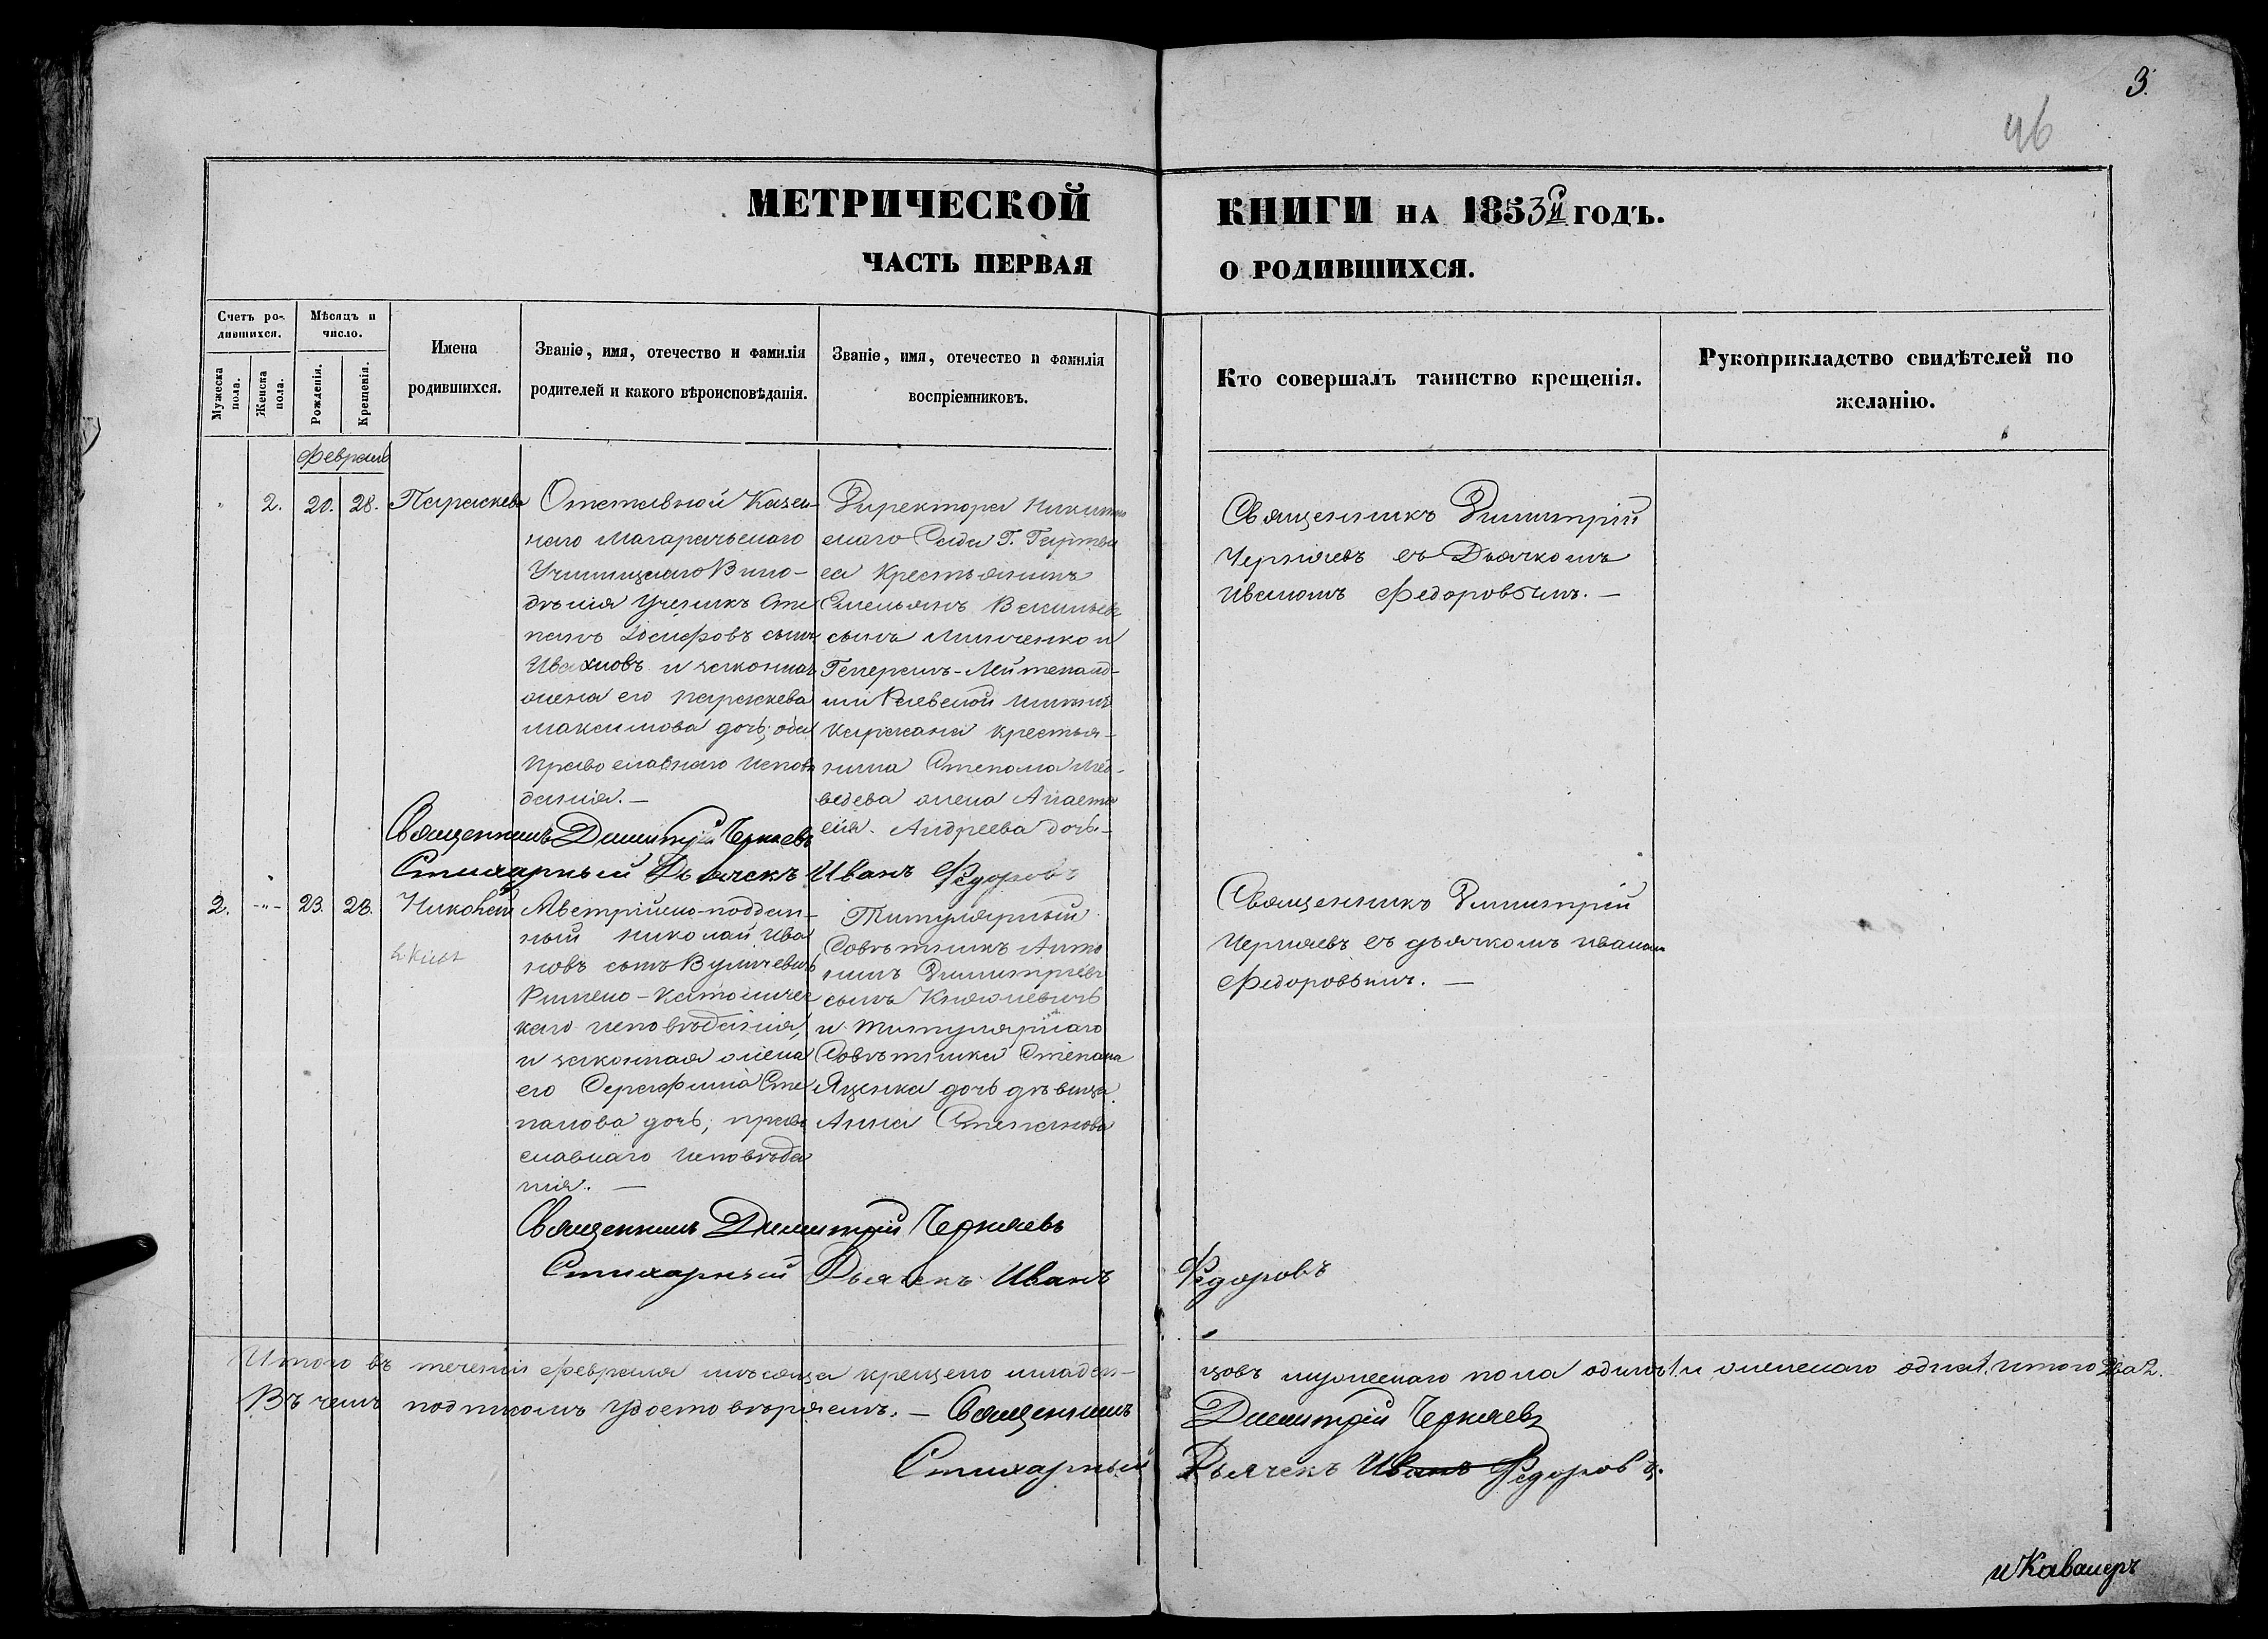 3.
46
МЕТРИЧЕСКОЙ КНИГИ НА 1853й ГОДЪ.
ЧАСТЬ ПЕРВАЯ О РОДИВШИХСЯ.
Счетъ ро-
дившихся.
Мужеска
пола.
Женска
пола.
Мѣсяцъ и
число.
Рожденія.
Крещенія.
Имена
родившихся.
Званіе, имя, отечество и фамилія
родителей и какого вѣроисповѣданія.
Званіе, имя, отечество и фамилія
воспріемниковъ.
Кто совершалъ таинство крещенія.
Рукоприкладство свидѣтелей по
желанію.
Февраль
" 2. 20. 28. Параскева
Отставной Казен-
наго Магарачьскаго
Училищнаго Вино-
дѣлія Ученикъ Сте
панъ Іосифовъ сынъ
и законная
жена его Параскева
Максимова дочь, оба
Православнаго Исповѣ
данія. —
Директора Никитн
скаго Сада Г. Гартви
са Крестьянинъ
Емельянъ Васильевъ
сынъ и
Генералъ-Лейтенанд-
ши Раевской
крестья-
нина Степана Мед-
ведева жена Анаста
сія Андреева дочь
Священникъ Димитрій
Черняевъ съ Дьячкомъ
Иваномъ Федоровымъ. —
Священникъ Димитрій Черняевъ
Стихарный Дьячекъ Иванъ Федоровъ
2. -"- 23. 28. Николай
Австрійско-поддан-
ный Николай Ива
новъ сынъ Вучичевичъ
Римско-Католичес
каго исповѣданія,
и законная жена
его Серафима Сте
панова дочь, право
славнаго исповѣда
нія. —
Титулярный
Совѣтникъ Анто
нинъ Димитріевъ
сынъ Княжевичъ
и Титулярнаго
Совѣтника Степана
Яценка дочь дѣвица
Анна Степанова
Священникъ Димитрій
Черняевъ съ дьячкомъ Иваномъ
Федоровымъ. —
Священникъ Димитрій Черняевъ
Стихарный Дьячекъ Иванъ Федоровъ
Итого въ теченіи Февраля мѣсяца крещено младен-
цовъ мужескаго пола одинъ 1. и женскаго одна 1. итого два 2.
Въ чемъ подписомъ удостовѣряемъ. — Священникъ Димитрій Черняевъ
Стихарный Дьячекъ Иванъ Федоровъ.
и Кавалеръ